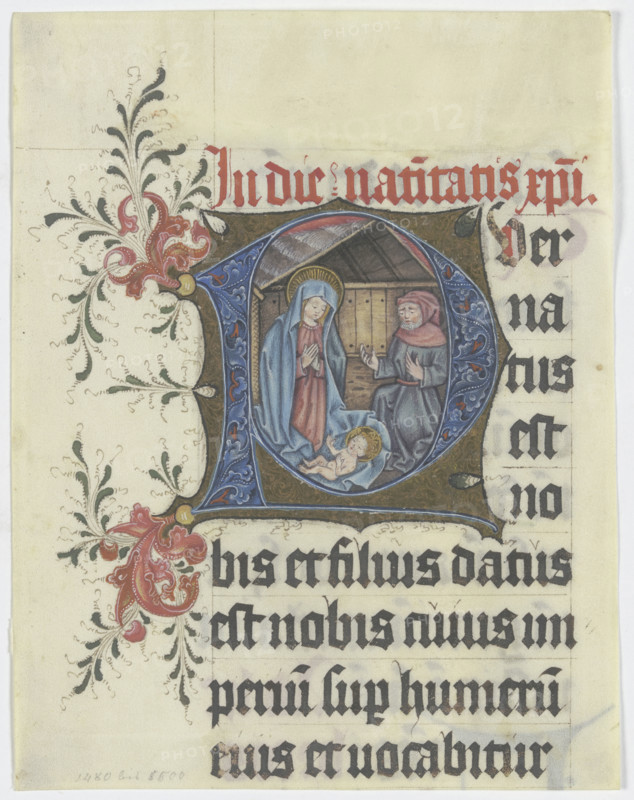 In die natītatis xp̄i.
Per
na
tus
est
no
bis et filius datus
est nobis cuius im
periū sup humerū
eius et uocabitur
PHOTO12